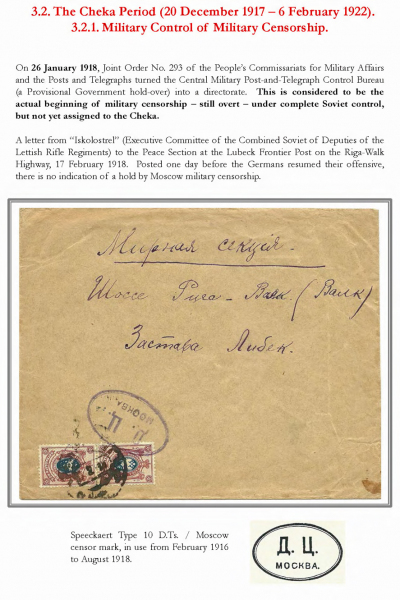 3.2. The Cheka Period (20 December 1917 – 6 February 1922).
3.2.1. Military Control of Military Censorship.
On 26 January 1918, Joint Order No. 293 of the People's Commissariats for Military Affairs
and the Posts and Telegraphs turned the Central Military Post-and-Telegraph Control Bureau
(a Provisional Government hold-over) into a directorate. This is considered to be the
actual beginning of military censorship – still overt – under complete Soviet control,
but not yet assigned to the Cheka.
A letter from "Iskolostrel" (Executive Committee of the Combined Soviet of Deputies of the
Lettish Rifle Regiments) to the Peace Section at the Lubeck Frontier Post on the Riga-Walk
Highway, 17 February 1918. Posted one day before the Germans resumed their offensive,
there is no indication of a hold by Moscow military censorship.
Мирная секція.
Шоссе Рига – Валк. (Валк)
Застава Либек.
Д. Ц.
МОСКВА.
Speeckaert Type 10 D.Ts. / Moscow
censor mark, in use from February 1916
to August 1918.
Д. Ц.
МОСКВА.